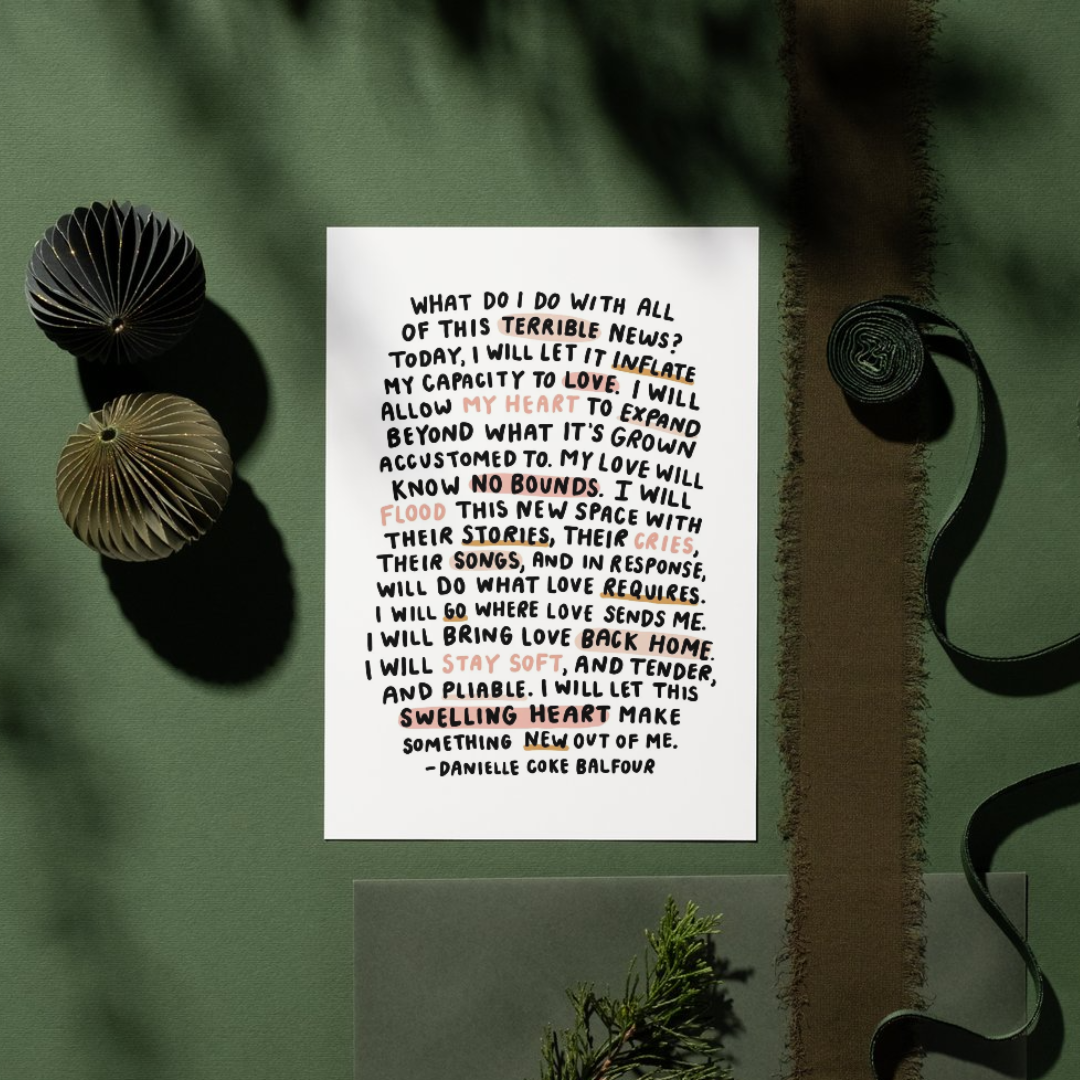 WHAT DO I DO WITH ALL
OF THIS TERRIBLE NEWS?
TODAY, I WILL LET IT INFLATE
MY CAPACITY TO LOVE. I WILL
ALLOW MY HEART TO EXPAND
BEYOND WHAT IT'S GROWN
ACCUSTOMED TO. MY LOVE WILL
KNOW NO BOUNDS. I WILL
FLOOD THIS NEW SPACE WITH
THEIR STORIES, THEIR CRIES,
THEIR SONGS, AND IN RESPONSE,
WILL DO WHAT LOVE REQUIRES.
I WILL GO WHERE LOVE SENDS ME.
I WILL BRING LOVE BACK HOME.
I WILL STAY SOFT, AND TENDER,
AND PLIABLE. I WILL LET THIS
SWELLING HEART MAKE
SOMETHING NEW OUT OF ME.
-DANIELLE COKE BALFOUR